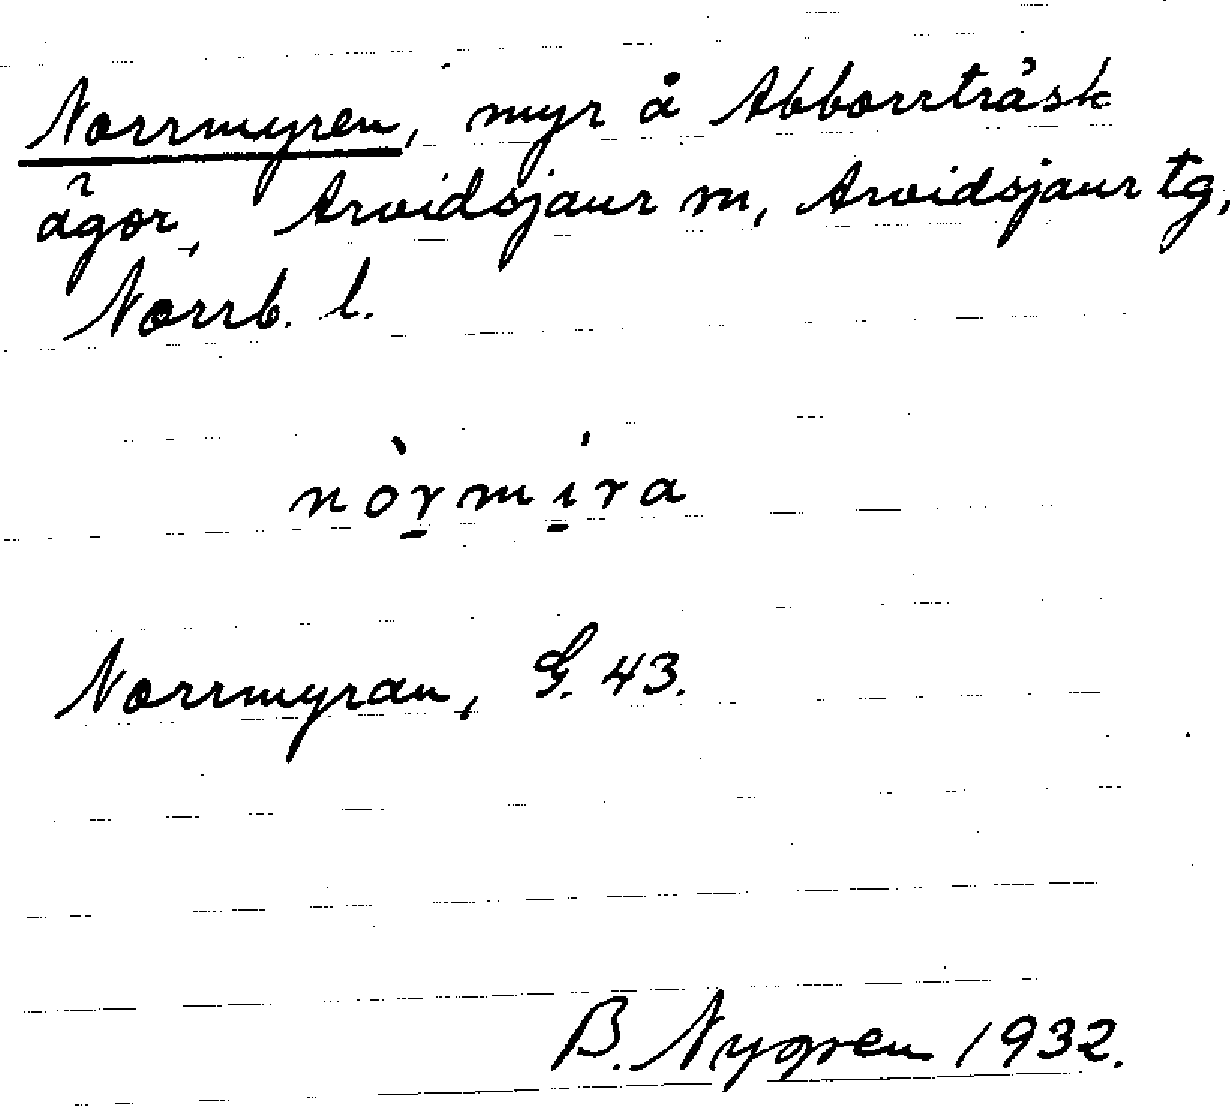 Norrmyren, myr å Abborrträsk
ägor, Arvidsjaur sn, Arvidsjaur tg,
Norrb. l.
nòrmira
Norrmyran, G. 43.
B. Nygren 1932.